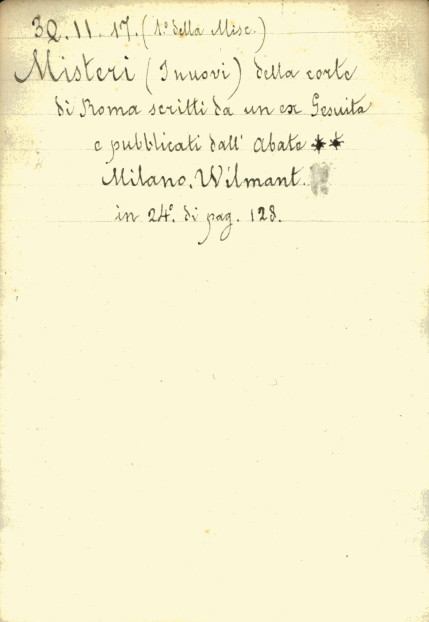 3Q. 11. 17. (1.º della Misc.)
Misteri (I nuovi) della corte
di Roma scritti da un ex Gesuita
e pubblicati dall' Abate **
Milano. Wilmant.
in 24.º di pag. 128.